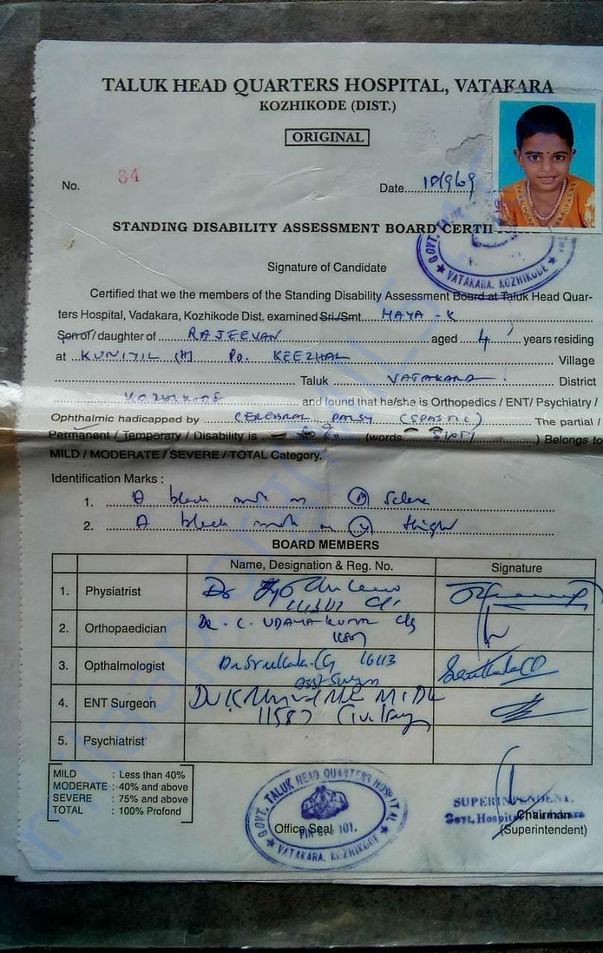 TALUK HEAD QUARTERS HOSPITAL, VATAKARA
KOZHIKODE (DIST.)
ORIGINAL
No. 84
Date 10/9/09
STANDING DISABILITY ASSESSMENT BOARD CERTI
Signature of Candidate
GOVT. TALUK
VATAKARA, KOZHIKODE
Certified that we the members of the Standing Disability Assessment Board at Taluk Head Quar-
ters Hospital, Vadakara, Kozhikode Dist. examined Sri./Smt. MAYA - K
Son of/daughter of RAJEEVAN aged 4 years residing
at KUNIYIL (H) Po. KEEZHAL Village
Taluk VATAKARA District
KOZHIKODE and found that he/she is Orthopedics / ENT / Psychiatry /
Ophthalmic hadicapped by CEREBRAL PALSY (SPASTIC) The partial /
Permanent / Temporary / Disability is % (words ) Belongs to
MILD / MODERATE / SEVERE / TOTAL Category.
Identification Marks :
1. A black mark on (R) Sclera
2. A black mark on thigh
BOARD MEMBERS
Name, Designation & Reg. No. Signature
1. Physiatrist Dr
2. Orthopaedician Dr. C. UDAYA KUMAR
3. Opthalmologist Dr Sreelatha. 16113
Asst Surgeon
4. ENT Surgeon Dr K
11587 Civil Surgeon
5. Psychiatrist
MILD : Less than 40%
MODERATE : 40% and above
SEVERE : 75% and above
TOTAL : 100% Profond
GOVT. TALUK HEAD QUARTERS HOSPITAL
Office Seal
VATAKARA, KOZHIKODE
SUPERINTENDENT.
Govt. Hospital
Chairman
(Superintendent)